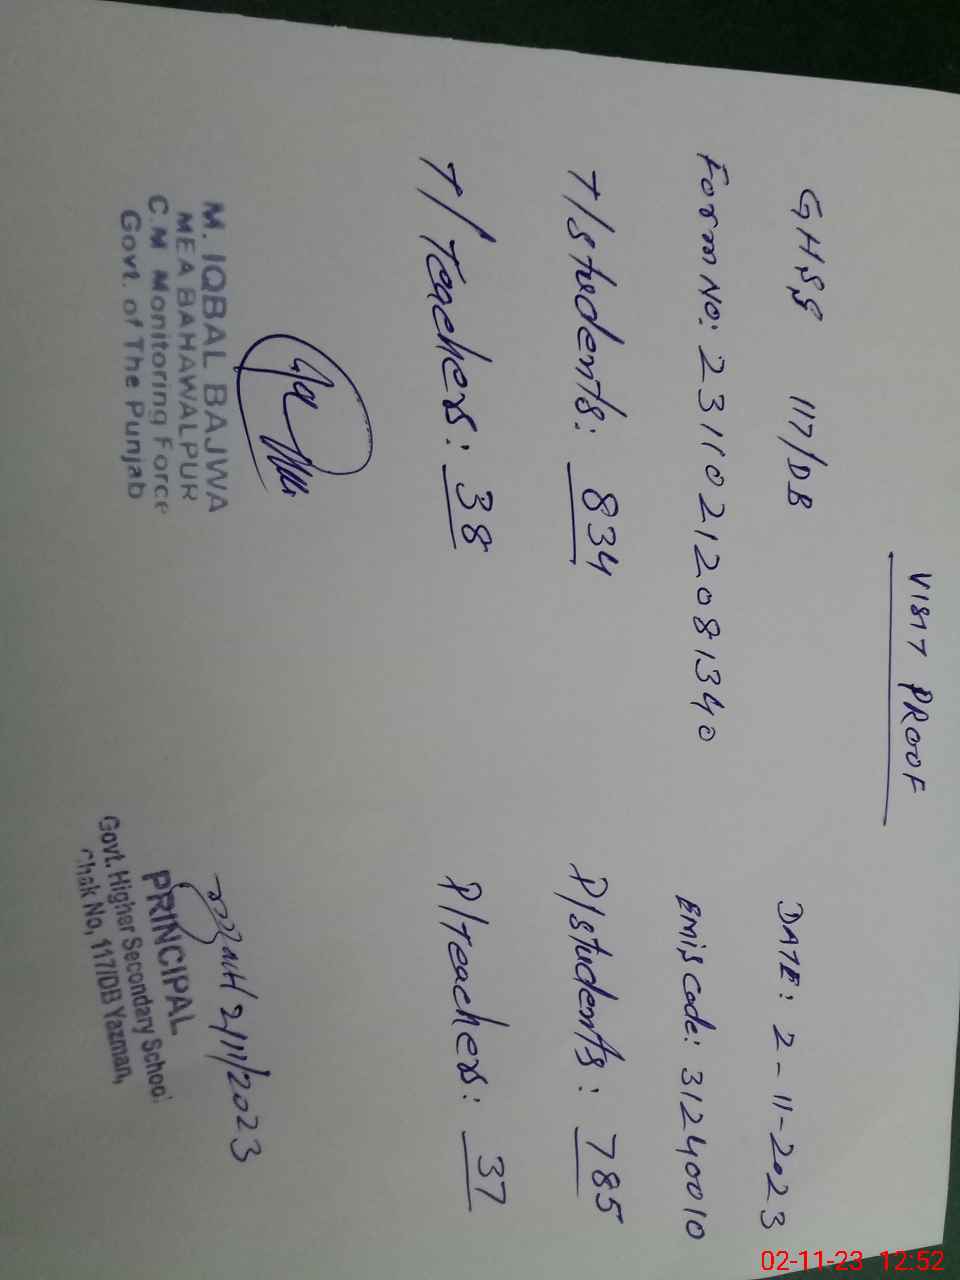 VISIT PROOF
GHSS 117/DB DATE: 2-11-2023
Form No: 23110212081340 EMIS Code: 31240010
T/Students: 834 P/Students: 785
T/Teachers: 38 P/Teachers: 37
M. IQBAL BAJWA
MEA BAHAWALPUR
C.M Monitoring Force
Govt. of The Punjab
2/11/2023
PRINCIPAL
Govt. Higher Secondary School
Chak No, 117/DB Yazman,
02-11-23 12:52